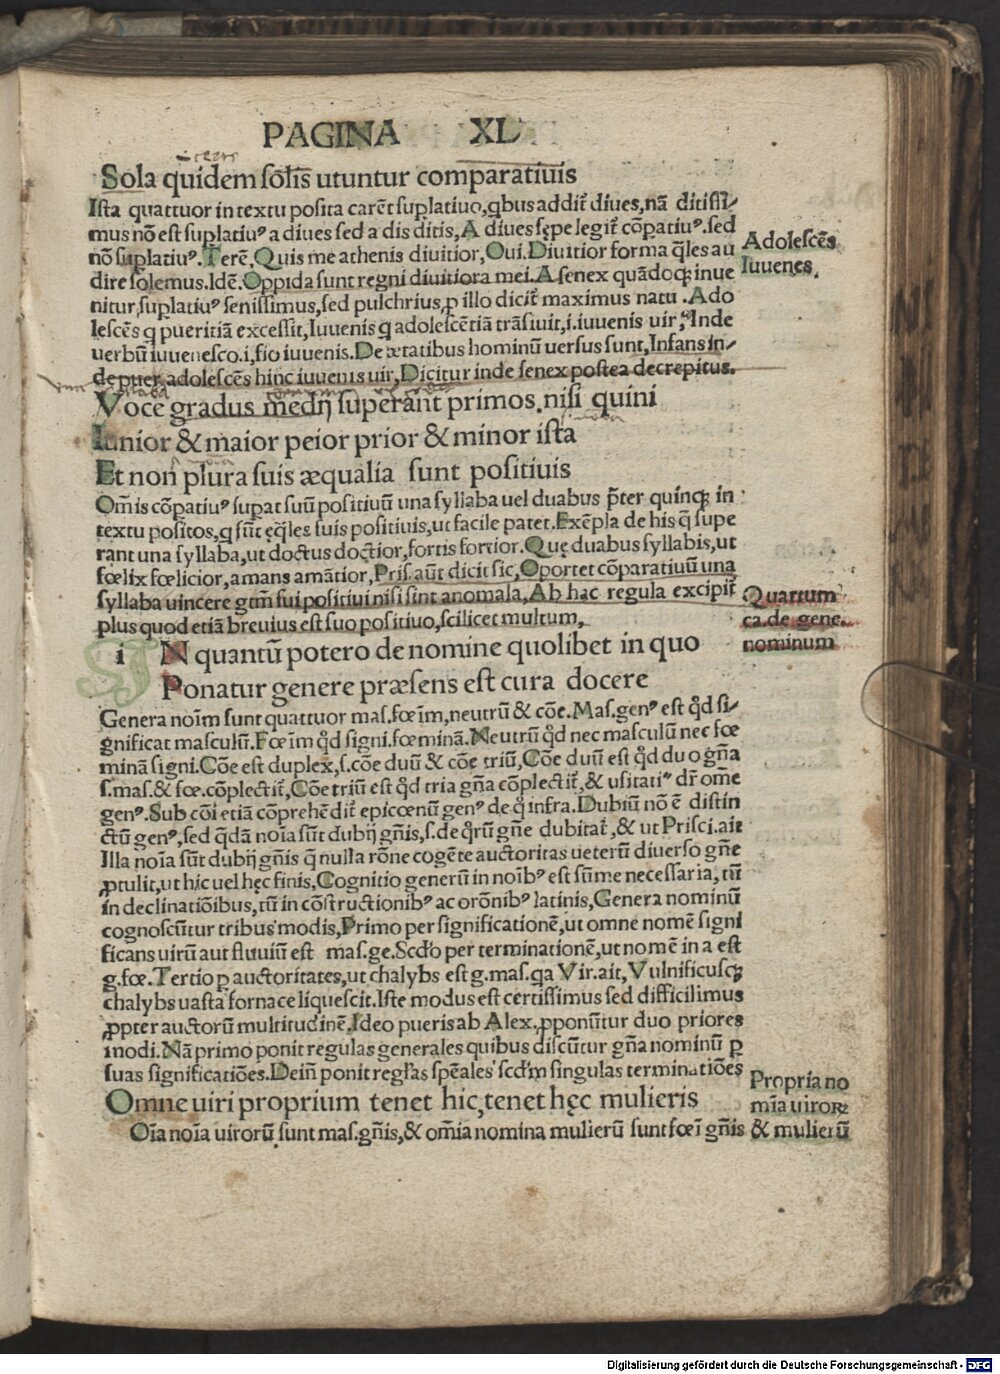 PAGINA XL
Sola quidem sōlis utuntur comparatiuis
Ista quattuor in textu posita carēt suplatiuo, qbus addit̄ diues, nā ditissi-
mus nō est suplatiuꝰ a diues sed a dis ditis, A diues sępe legit̄ cōpatiuꝰ. sed
nō suplatiuꝰ. Terē. Quis me athenis diuitior, Oui. Diuitior forma q̄les au
dire solemus. Idē. Oppida sunt regni diuitiora mei. A senex quādoqꝫ inue
nitur, suplatiuꝰ senissimus, sed pulchrius, ꝓ illo dicit̄ maximus natu. Ado
lescēs q pueritiā excessit, Iuuenis q adolescētiā trāsiuit, i. iuuenis uir, Inde
uerbū iuuenesco. i, fio iuuenis. De ætatibus hominū uersus sunt, Infans in-
de puer, adolescēs hinc iuuenis uir, Dicitur inde senex postea decrepitus.
Adolescēs
Iuuenes,
Voce gradus medij superant primos, nisi quini
Iunior & maior peior prior & minor ista
Et non plura suis æqualia sunt positiuis
Om̄is cōpatiuꝰ supat suū positiuū una syllaba uel duabus p̄ter quinqꝫ in
textu positos, q sūt ęq̄les suis positiuis, ut facile patet. Exēpla de his q̄ supe
rant una syllaba, ut doctus doctior, fortis fortior. Quę duabus syllabis, ut
fœlix fœlicior, amans amātior, Pris. aūt dicit sic, Oportet cōparatiuū una
syllaba uincere gtm̄ sui positiui nisi sint anomala, Ab hac regula excipit̄
plus quod etiā breuius est suo positiuo, scilicet multum,
Quartum
ca. de gene.
nominum
i N quantū potero de nomine quolibet in quo
Ponatur genere præsens est cura docere
Genera noīm sunt quattuor mas. fœīm, neutrū & cōe. Mas. genꝰ est qd̄ si-
gnificat masculū. Fœīm qd̄ signi. fœminā. Neutrū qd̄ nec masculū nec fœ
minā signi. Cōe est duplex, s. cōe duū & cōe triū, Cōe duū est qd̄ duo gn̄a
s. mas. & fœ. cōplectit̄, Cōe triū est qd̄ tria gn̄a cōplectit̄, & usitatiꝰ dr̄ om̄e
genꝰ. Sub cōi etiā cōprehēdit̄ epicœnū genꝰ de q̊ infra. Dubiū nō ē distin
ctū genꝰ, sed q̄dā noīa sūt dubij gn̄is, s. de q̊rū gn̄e dubitat̄, & ut Prisci. ait
Illa noīa sūt dubij gn̄is q̄ nulla rōne cogēte auctoritas ueterū diuerso gn̄e
ꝓtulit, ut hic uel hęc finis, Cognitio generū in noībꝰ est sūme necessaria, tū
in declinatiōibus, tū in cōstructionibꝰ ac orōnibꝰ latinis, Genera nominū
cognoscūtur tribus modis, Primo per significationē, ut omne nomē signi
ficans uirū aut fluuiū est mas. ge. Scdo per terminationē, ut nomē in a est
g. fœ. Tertio ꝑ auctoritates, ut chalybs est g. mas. qa Vir. ait, Vulnificusqꝫ
chalybs uasta fornace liquescit. Iste modus est certissimus sed difficilimus
ꝓpter auctorū multitudinē. Ideo pueris ab Alex. ꝓponūtur duo priores
modi. Nā primo ponit regulas generales quibus discūtur gn̄a nominū ꝑ
suas significatiōes. Dein̄ ponit regl̄as spēales scdm̄ singulas terminatiōes
Omne uiri proprium tenet hic, tenet hęc mulieris
Oīa noīa uirorū sunt mas. gn̄is, & om̄ia nomina mulierū sunt fœī gn̄is
Propria no
mīa uiroꝝ
& mulierū
Digitalisierung gefördert durch die Deutsche Forschungsgemeinschaft - DFG